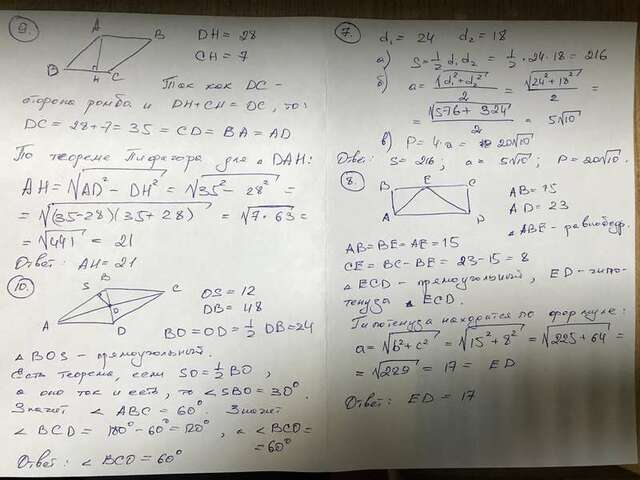 9.
A
B
D
H
C
DH = 28
CH = 7
Так как DC -
сторона ромба и DH+CH = DC, то:
DC = 28+7 = 35 = CD = BA = AD
По теореме Пифагора для △ DAH:
AH = √AD² - DH² = √35² - 28² =
= √(35-28)(35+28) = √7·63 =
= √441 = 21
Ответ: AH = 21
10.
S
B
C
A
D
OS = 12
DB = 48
BO = OD = 1/2 DB = 24
△ BOS - прямоугольный.
Есть теорема, если SO = 1/2 BO,
а оно так и есть, то ∠SBO = 30°
Значит ∠ ABC = 60°. Значит
∠ BCD = 180° - 60° = 120°, а ∠BCO =
= 60°
Ответ: ∠ BCO = 60°
7.
d₁ = 24 d₂ = 18
а) S = 1/2 d₁ d₂ = 1/2 · 24 · 18 = 216
б) a = √d₁² + d₂² / 2 = √24² + 18² / 2 =
= √576 + 324 / 2 = 5√10
в) P = 4·a = 20√10
Ответ: S = 216; a = 5√10; P = 20√10.
8.
B
E
C
A
D
AB = 15
AD = 23
△ABE - равнобедр.
AB = BE = AE = 15
CE = BC - BE = 23 - 15 = 8
△ ECD - прямоугольный, ED - гипо-
тенуза △ ECD.
Гипотенуза находится по формуле:
a = √b² + c² = √15² + 8² = √225 + 64 =
= √289 = 17 = ED
Ответ: ED = 17